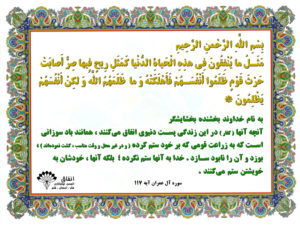 بِسْمِ اللَّهِ الرَّحْمنِ الرَّحِيمِ
مَثَلُ ما يُنْفِقُونَ فِي هذِهِ الْحَياةِ الدُّنْيا كَمَثَلِ رِيحٍ فِيها صِرٌّ أَصابَتْ
حَرْثَ قَوْمٍ ظَلَمُوا أَنْفُسَهُمْ فَأَهْلَكَتْهُ وَ ما ظَلَمَهُمُ اللَّهُ وَ لكِنْ أَنْفُسَهُمْ
يَظْلِمُونَ
به نام خداوند بخشنده بخشایشگر
آنچه آنها در این زندگی پست دنیوی انفاق می‌کنند ، همانند باد سوزانی
است که به زراعت قومی که بر خود ستم کرده (و در غیر محل و وقت مناسب ، کشت نموده‌اند)
بوزد و آن را نابود سازد . خدا به آنها ستم نکرده ؛ بلکه آنها ، خودشان به
خویشتن ستم می‌کنند .
سوره آل عمران آیه ۱۱۷
انفاق